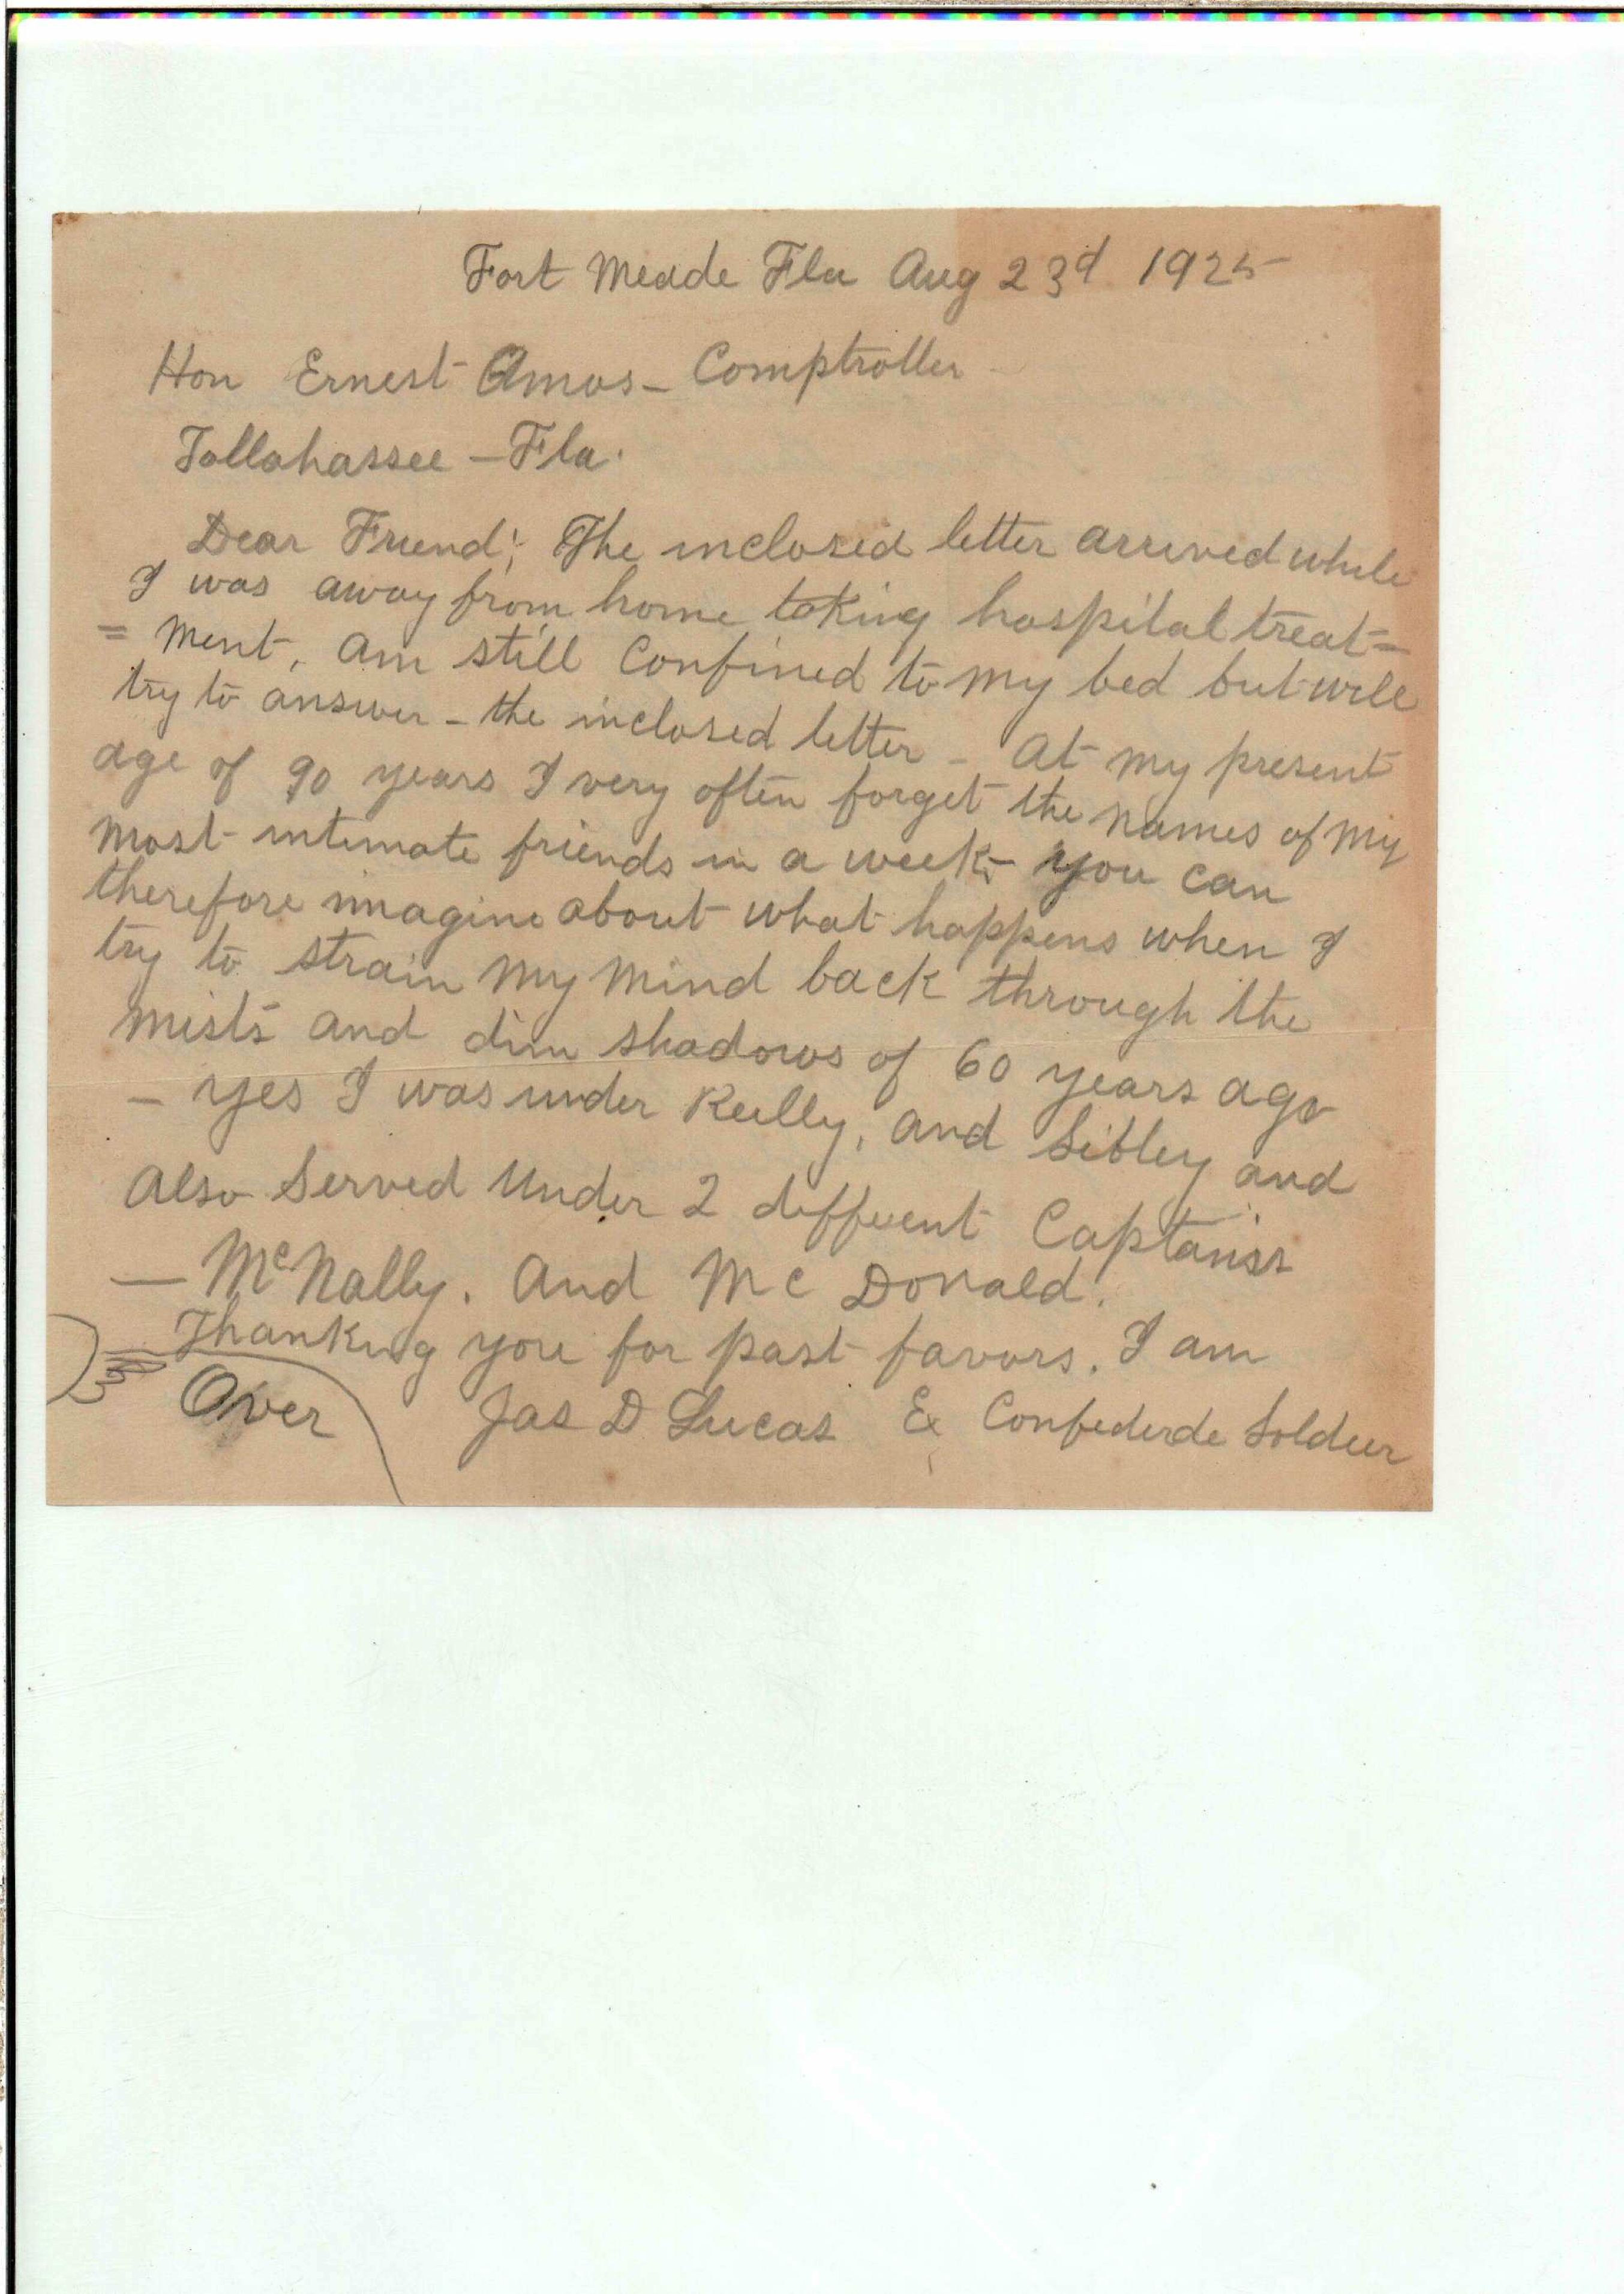 Fort Meade Fla Aug 23d 1925
Hon Ernest Amos - Comptroller
Tallahassee - Fla.
Dear Friend; The inclosed letter arrived while
I was away from home taking hospital treat=
= ment, am still Confined to my bed but will
try to answer - the inclosed letter - At my present
age of 90 years I very often forget the names of my
most intimate friends in a week - you can
therefore imagine about what happens when I
try to strain my mind back through the
mists and dim shadows of 60 years ago
- yes I was under Reilly, and Sibley and
also Served Under 2 different Captains
- McNally. And Mc Donald.
Thanking you for past favors. I am
Over Jas D Lucas Ex Confederate Soldier